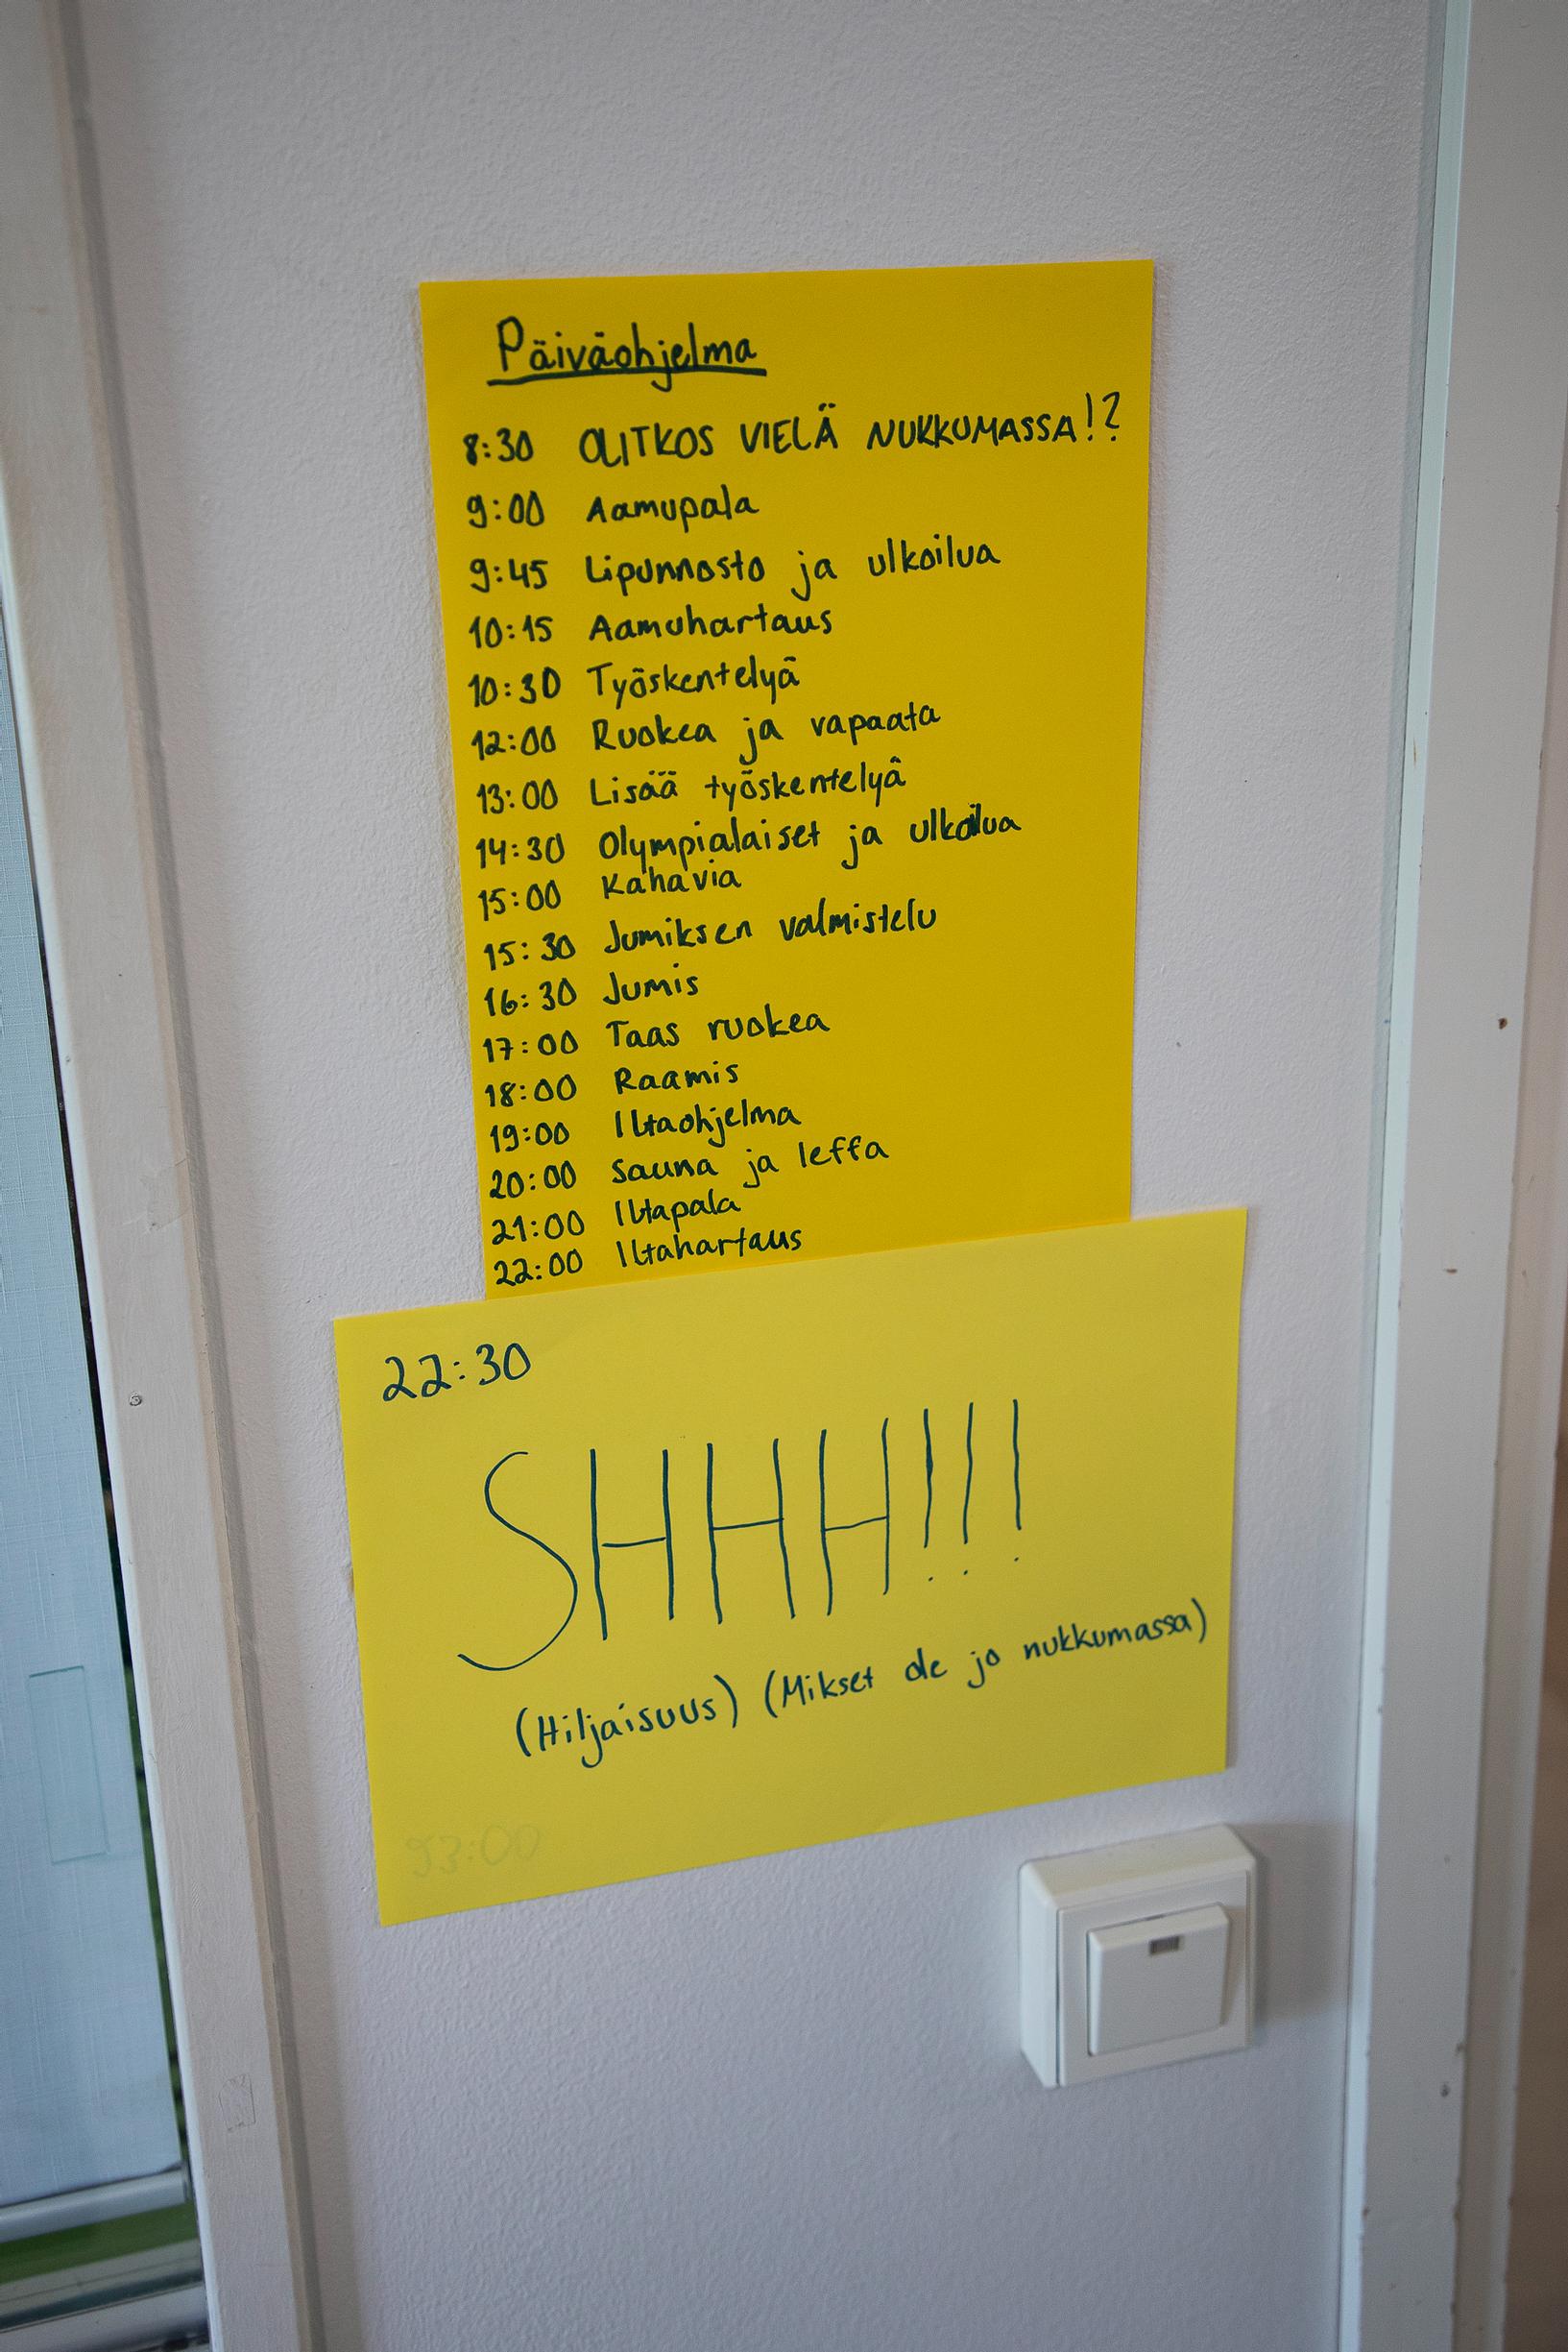 Päiväohjelma
8:30 OLITKOS VIELÄ NUKKUMASSA!?
9:00 Aamupala
9:45 Lipunnosto ja ulkoilua
10:15 Aamuhartaus
10:30 Työskentelyä
12:00 Ruokea ja vapaata
13:00 Lisää työskentelyä
14:30 Olympialaiset ja ulkoilua
15:00 Kahavia
15:30 Jumiksen valmistelu
16:30 Jumis
17:00 Taas ruokea
18:00 Raamis
19:00 Iltaohjelma
20:00 Sauna ja leffa
21:00 Iltapala
22:00 Iltahartaus
22:30
SHHH!!!
(Hiljaisuus) (Mikset ole jo nukkumassa)